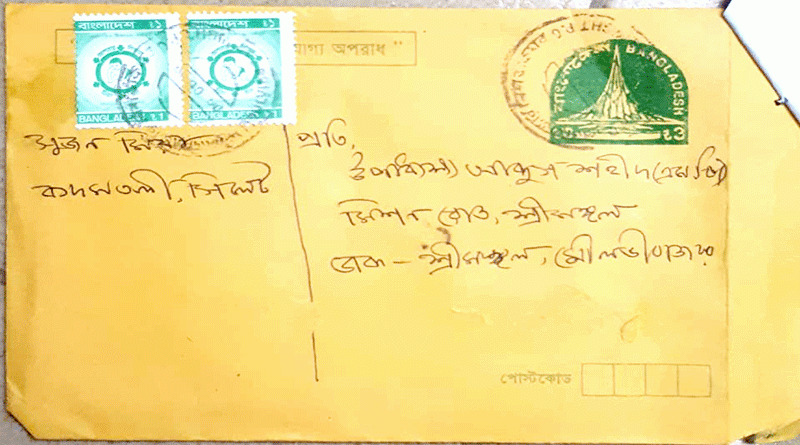 বাংলাদেশ ৳১
বাংলাদেশ ৳১
BANGLADESH ৳1
BANGLADESH ৳1
যোগ্য অপরাধ "
বাংলাদেশ BANGLADESH
৳৩
সুজন মিয়া
কদমতলী, সিলেট
প্রতি,
উপাধ্যক্ষ আব্দুস শহীদ (এম পি)
মিশন রোড, শ্রীমঙ্গল
ডাক - শ্রীমঙ্গল, মৌলভীবাজার
পোস্টকোড